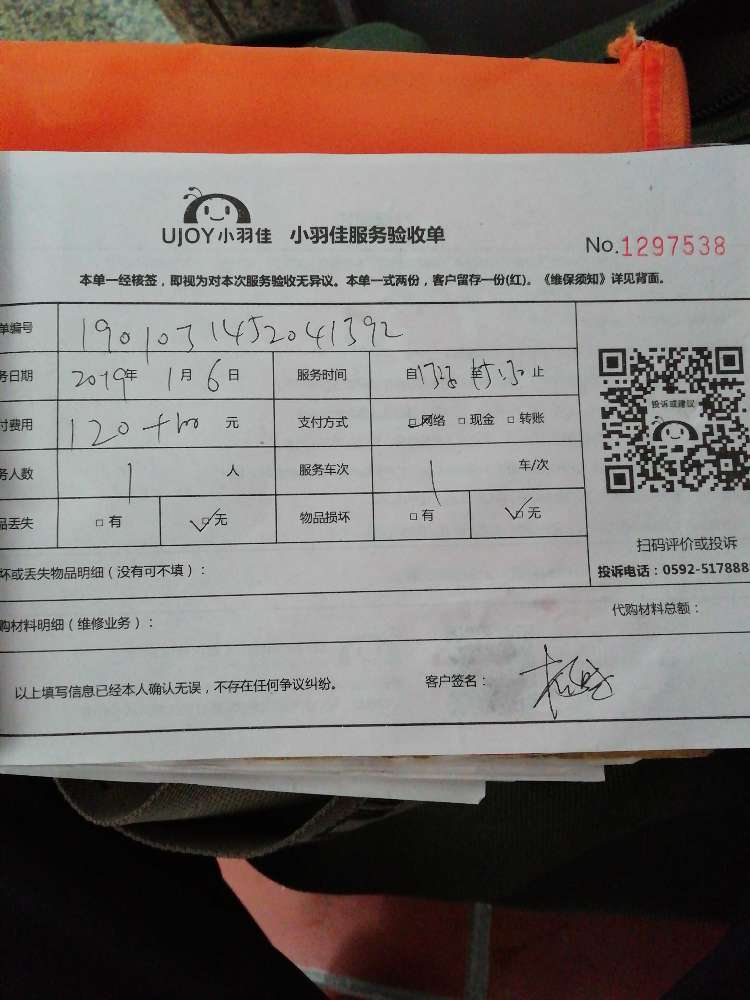 UJOY小羽佳 小羽佳服务验收单
No.1297538
本单一经核签，即视为对本次服务验收无异议。本单一式两份，客户留存一份(红)。《维保须知》详见背面。
单编号 1901031452041392
务日期 2019年 1月 6日 服务时间 自 至 止
付费用 120 元 支付方式 □网络 □现金 □转账
务人数 1 人 服务车次 1 车/次
品丢失 □有 □无 物品损坏 □有 □无
投诉或建议
扫码评价或投诉
投诉电话：0592-517888
坏或丢失物品明细（没有可不填）：
购材料明细（维修业务）： 代购材料总额：
以上填写信息已经本人确认无误，不存在任何争议纠纷。 客户签名：